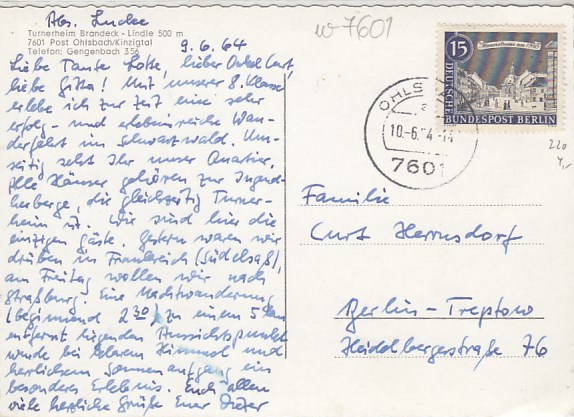 Abs. Ludke
Turnerheim Brandeck - Lindle 500 m
7601 Post Ohlsbach/Kinzigtal
Telefon: Gengenbach 356
9.6.64
Liebe Tante Lotte, lieber Onkel Curt,
liebe Gitta! Mit unserer 8. Klasse
erlebe ich zur Zeit eine sehr
erfolg- und erlebnisreiche Wan-
derfahrt im Schwarzwald. Um-
seitig seht Ihr unser Quartier.
Alle Häuser gehören zur Jugend-
herberge, die gleichzeitig Turner-
heim ist. Wir sind hier die
einzigen Gäste. Gestern waren wir
drüben in Frankreich (Südelsaß),
am Freitag wollen wir nach
Straßburg. Eine Nachtwanderung
(beginnend 2 30) zu einem 5 km
entfernt liegenden Aussichtspunkt
wurde bei klarem Himmel und
herrlichem Sonnenaufgang ein
besonderes Erlebnis. Euch allen
viele herzliche Grüße Euer Dieter
w 7601
15
DEUTSCHE
BUNDESPOST BERLIN
OHLS
a
10.-6.64-14
7601
220
4,-
Familie
Curt Herrnsdorf
Berlin-Treptow
Heidelbergerstraße 76